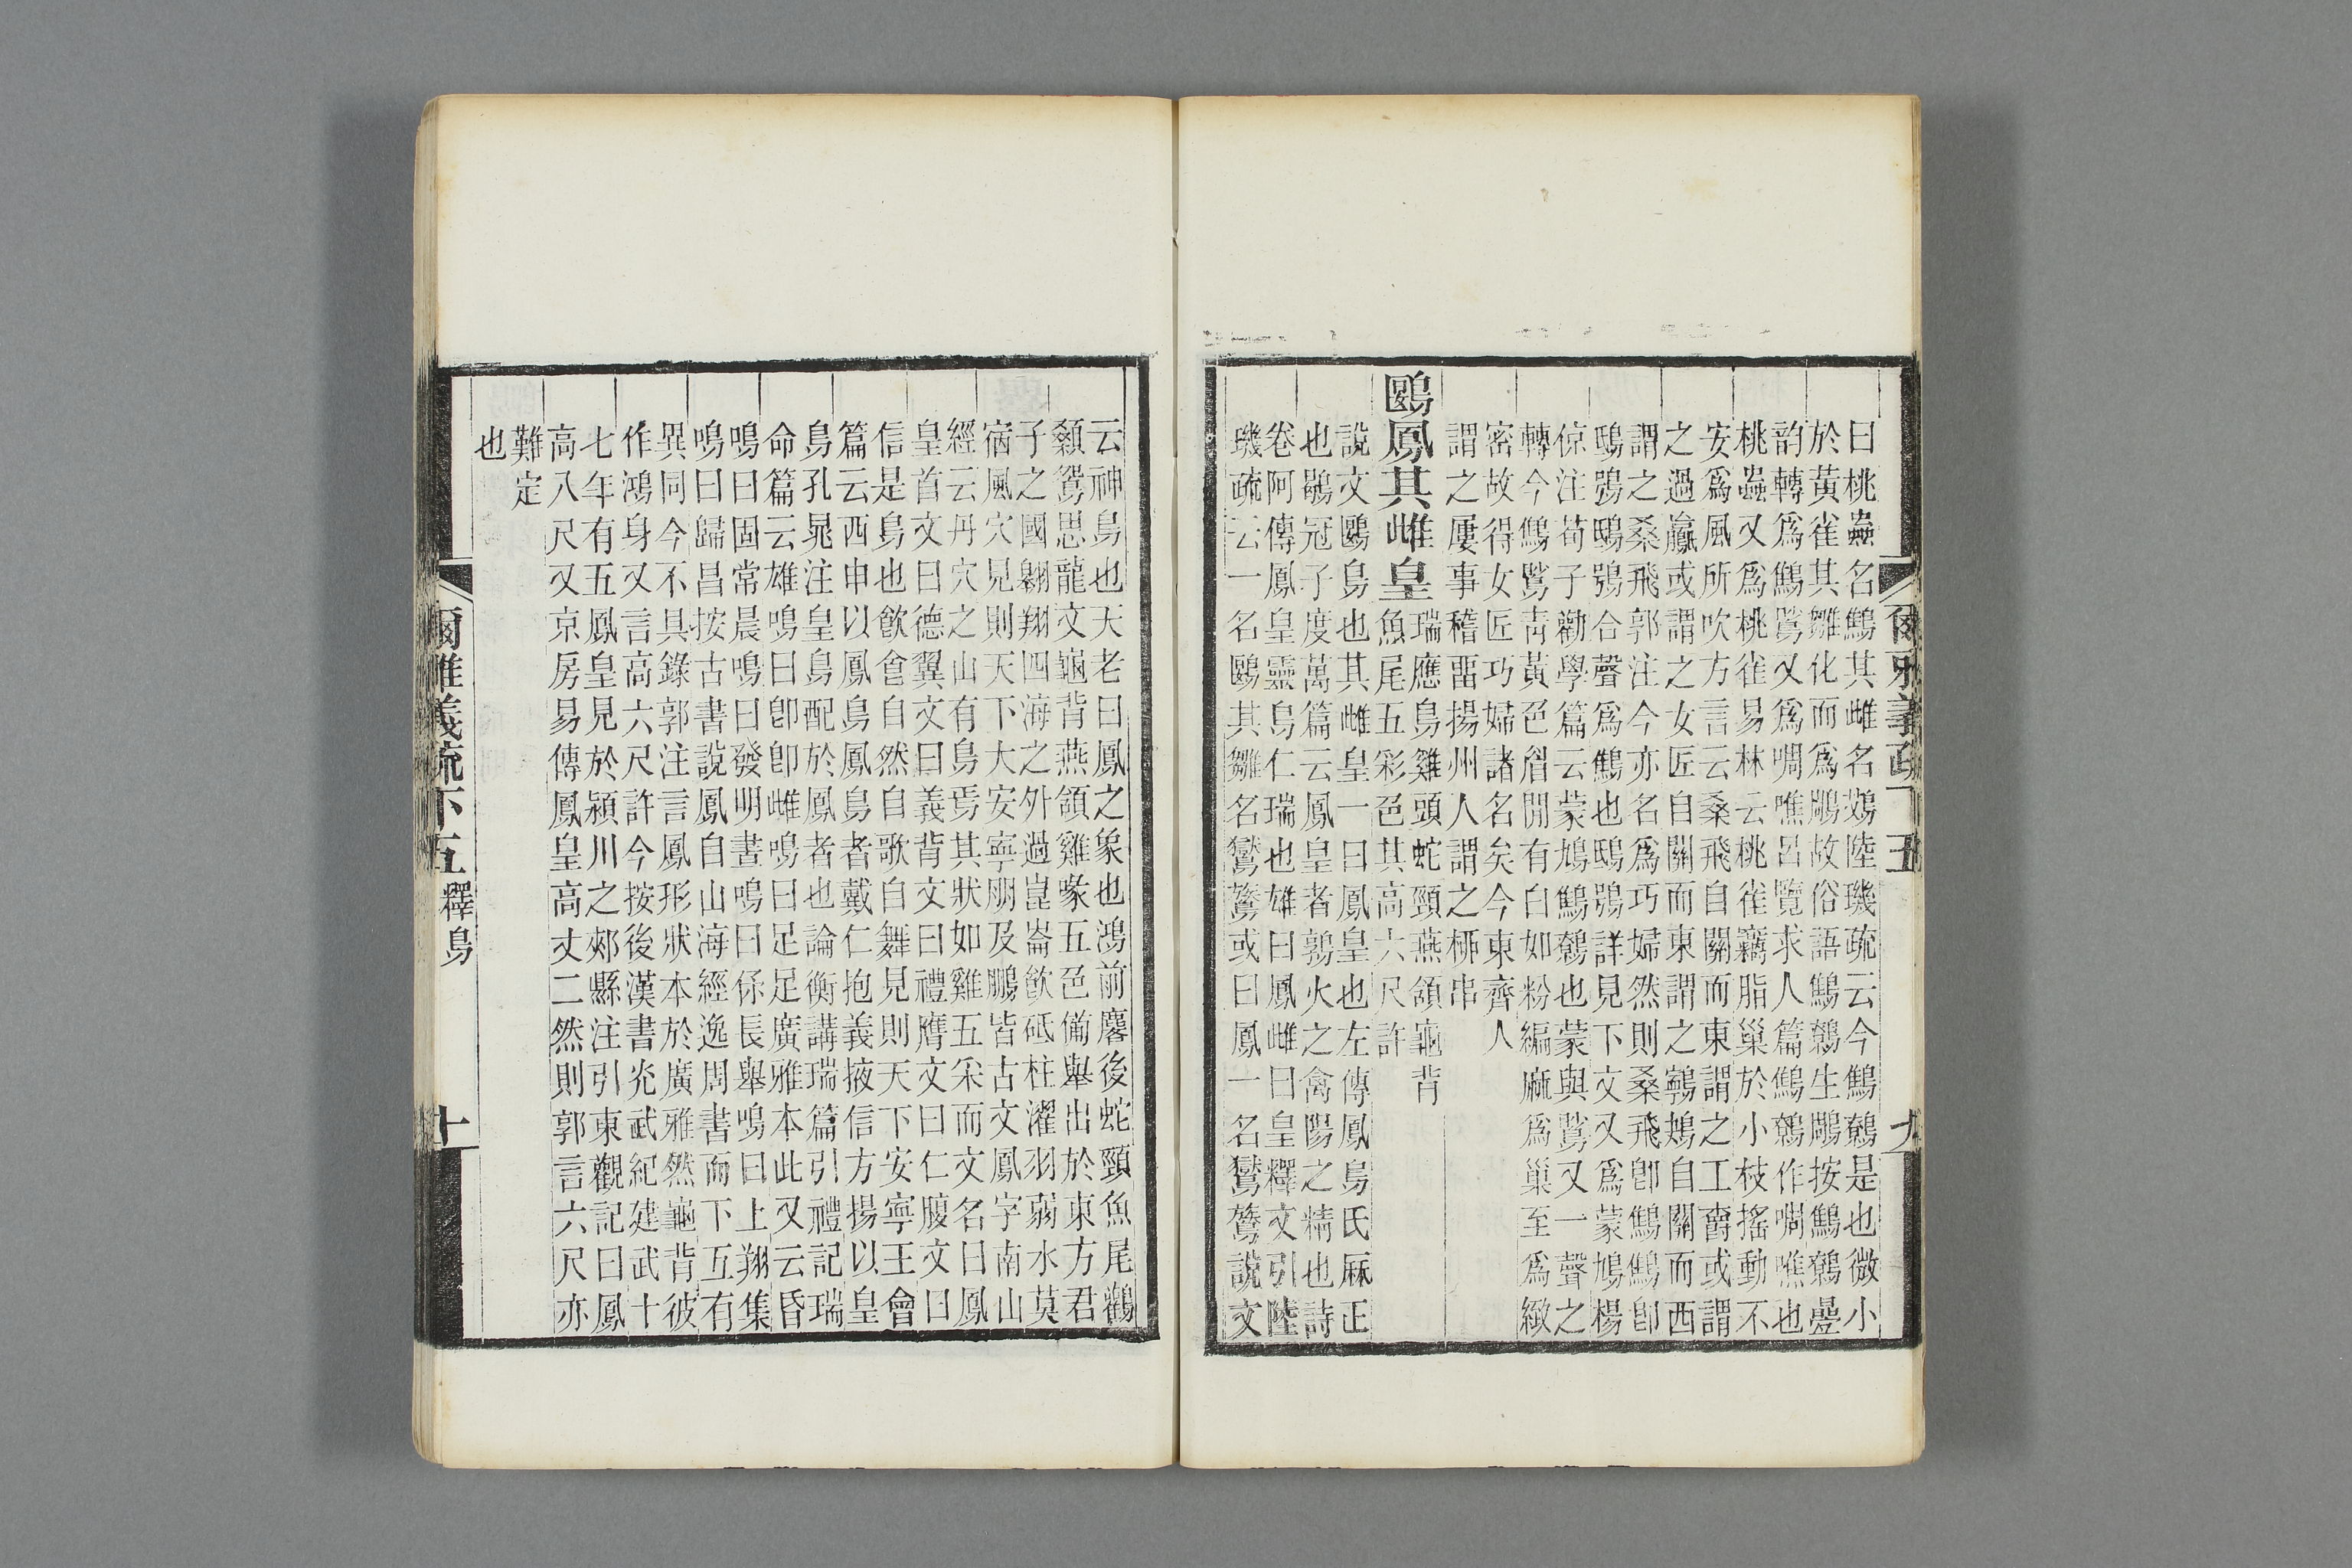 曰桃蟲名鷦其雌名鴱陸璣疏云今鷦鷯是也微小
於黃雀其雛化而爲鵰故俗語鷦鷯生鵰按鷦鷯疊
韵轉爲鷦鷚又爲啁噍呂覽求人篇鷦鷯作啁噍也
桃蟲又爲桃雀易林云桃雀竊脂巢於小枝搖動不
安爲風所吹方言云桑飛自關而東謂之工爵或謂
之過鸁或謂之女匠自關而東謂之鸋鴂自關而西
謂之桑飛郭注今亦名爲巧婦然則桑飛卽鷦鷦卽
鴟鴞鴟鴞合聲爲鷦也鴟鴞詳見下文又爲蒙鳩楊
倞注荀子勸學篇云蒙鳩鷦鷯也蒙與鷚又一聲之
轉今鷦鷚靑黃色眉閒有白如粉編麻爲巢至爲緻
密故得女匠巧婦諸名矣今東齊人
謂之屢事稽畱揚州人謂之桺串
鶠鳳其雌皇
瑞應鳥雞頭蛇頸燕頷龜背
魚尾五彩色其高六尺許
說文鶠鳥也其雌皇一曰鳳皇也左傳鳳鳥氏厤正
也鶡冠子度萬篇云鳳皇者鶉火之禽陽之精也詩
卷阿傳鳳皇靈鳥仁瑞也雄曰鳳雌曰皇釋文引陸
璣疏云一名鶠其雛名鸑鷟或曰鳳一名鸑鷟說文
云神鳥也天老曰鳳之象也鴻前麐後蛇頸魚尾鸛
顙鴛思龍文龜背燕頷雞喙五色備舉出於東方君
子之國翺翔四海之外過崑崙飮砥柱濯羽弱水莫
宿風穴見則天下大安寧朋及鵬皆古文鳳字南山
經云丹穴之山有鳥焉其狀如雞五采而文名曰鳳
皇首文曰德翼文曰義背文曰禮膺文曰仁腹文曰
信是鳥也飮食自然自歌自舞見則天下安寧王會
篇云西申以鳳鳥鳳鳥者戴仁抱義掖信方揚以皇
鳥孔晁注皇鳥配於鳳者也論衡講瑞篇引禮記瑞
命篇云雄鳴曰卽卽雌鳴曰足足廣雅本此又云昏
鳴曰固常晨鳴曰發明晝鳴曰保長舉鳴曰上翔集
鳴曰歸昌按古書說鳳自山海經逸周書而下互有
異同今不具錄郭注言鳳形狀本於廣雅然龜背彼
作鴻身又言高六尺許今按後漢書光武紀建武十
七年有五鳳皇見於潁川之郟縣注引東觀記曰鳳
高八尺又京房易傳鳳皇高丈二然則郭言六尺亦
難定
也
爾雅義疏下五 釋鳥
十